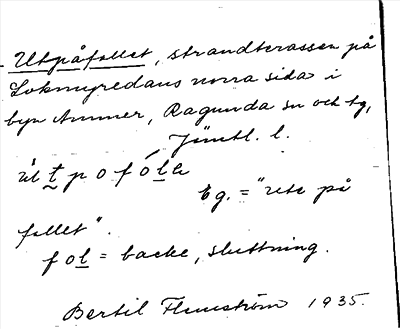 Utpåfallet, strandterassen på
Lokmyredans norra sida i
byn Ammer, Ragunda sn och tg,
Jämtl. l.
ùt p o f ó l a
Eg. = "ute på
fallet".
fol = backe, sluttning.
Bertil Flemström 1935.